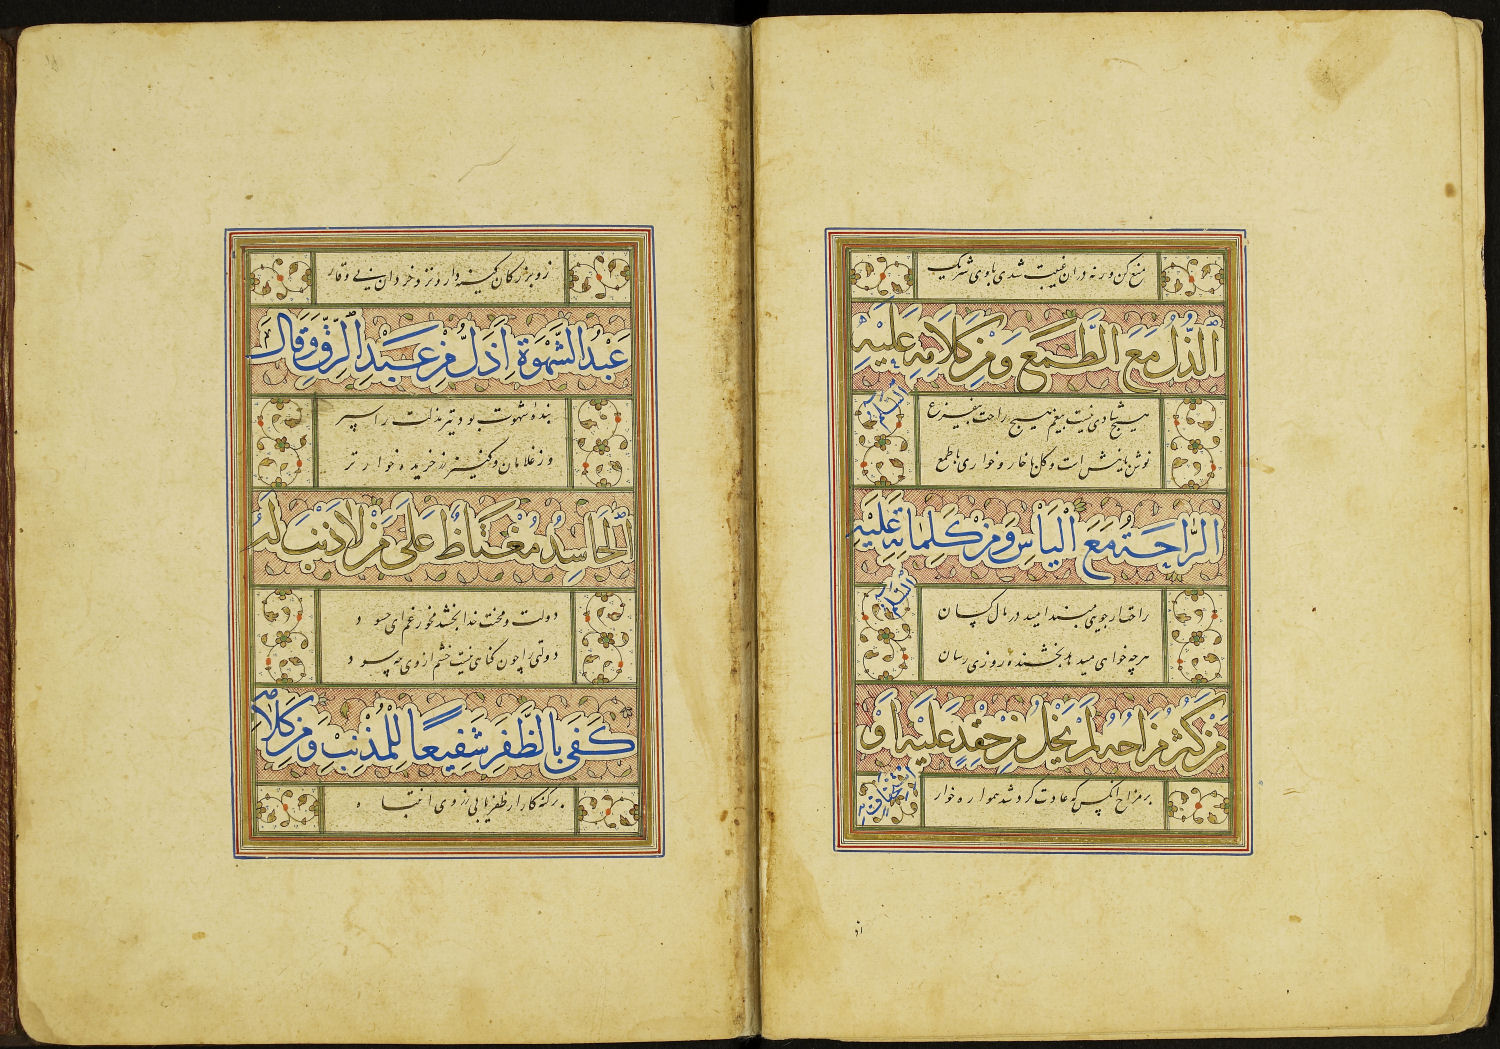 منع کن ورنه دران غیبت شدی با وی شریک
اَلذُّلُّ مَعَ الطَّمَعِ وَمِنْ كَلَامِهِ عَلَيْهِ
السّلم
هیچ شادی نیست بیغم هیچ راحت بیفزع
نوش با نیش است و گل با خار و خواری با طمع
الرَّاحَةُ مَعَ الْيَأْسِ وَمِنْ كَلِمَاتِهِ عَلَيْهِ
السّلم
راحت ار جویی مبند امید در مال کسان
هرچه خواهی میدهد بخشنده روزی رسان
مَنْ كَثُرَ مِزَاحُهُ لَمْ يَخْلُ مِنْ حِقْدٍ عَلَيْهِ اَوْ
اِسْتِخْفَافٍ بِهِ
بر مزاح آنکس که عادت کرد شد همواره خوار
از
زو بزرگان کینه دارد نزد خردان بی وقار
عَبْدُ الشَّهْوَةِ اَذَلُّ مِنْ عَبْدِ الرِّقِّ وَقَالَ
بنده شهوت بود تیر مذلت را سپر
وز غلامان و کنیز زر خریده خوارتر
اَلْحَاسِدُ مُغْتَاظٌ عَلَى مَنْ لَا ذَنْبَ لَهُ
دولت و محنت خدا بخشد مخور غم ای حسود
دولتی را چون گناهی نیست خشم از وی چه سود
كَفَى بِالظَّفَرِ شَفِيعًا لِلْمُذْنِبِ وَمِنْ كَلَامِهِ
بر گنه کار ار ظفر یابی ز وی